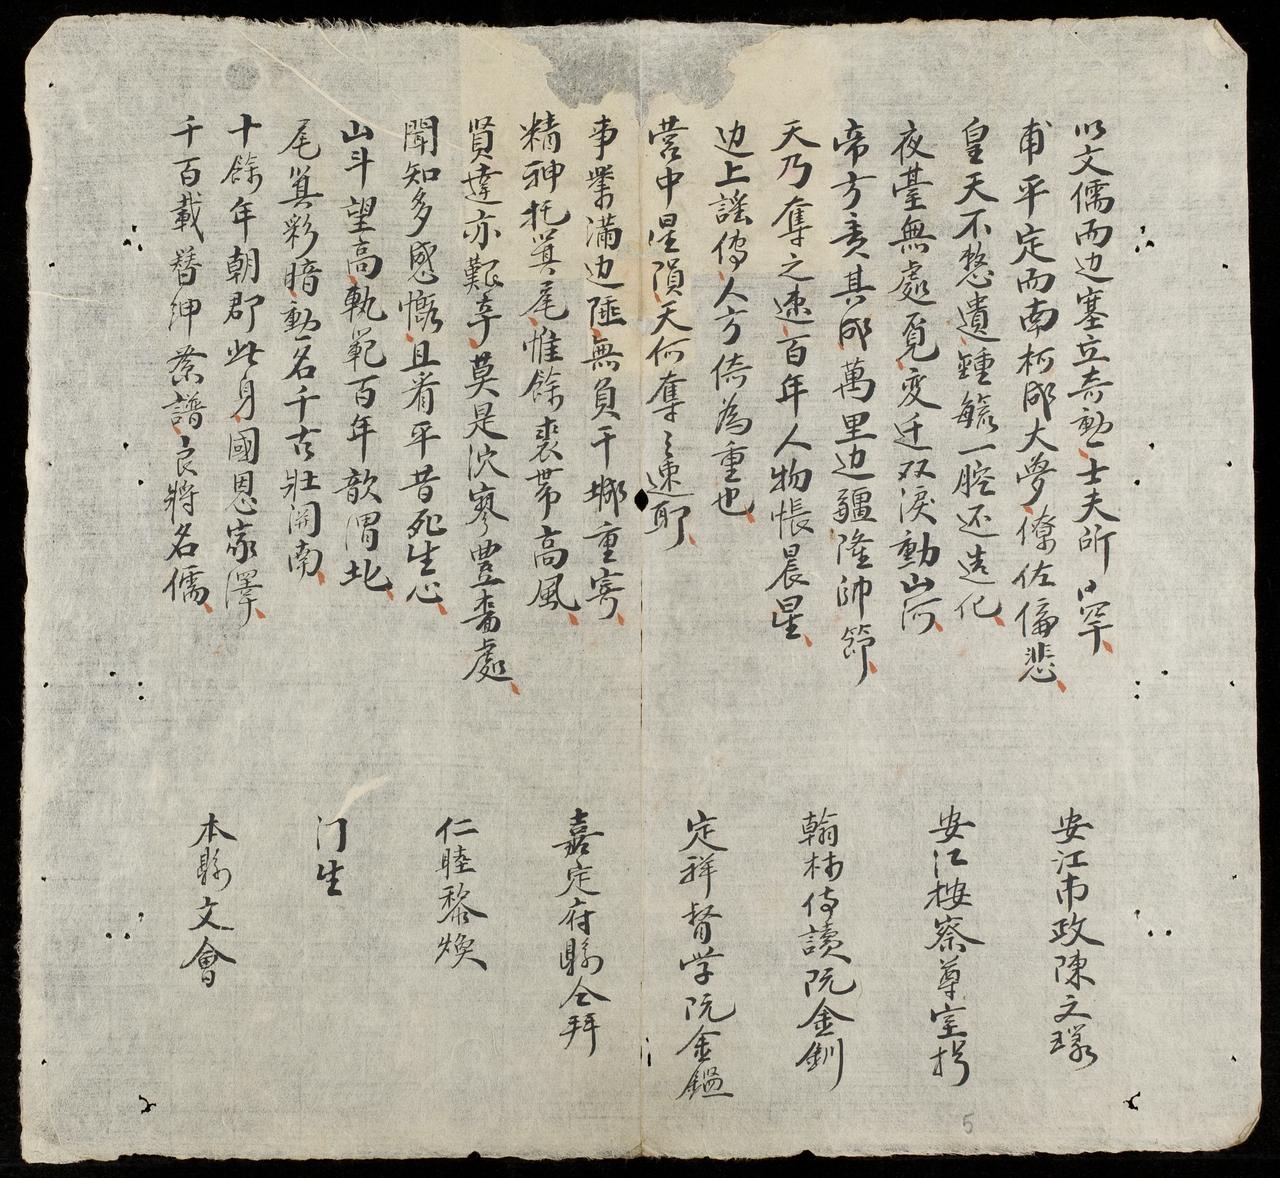 以文儒而边塞立奇勳士夫所日罕
甫平定而南柯成大夢僚佐偏悲
皇天不憗遺鍾毓一腔还造化
夜臺無處覓变迁双淚動山河
帝方責其成萬里边疆隆帥節
天乃奪之速百年人物悵晨星
边上謡傳人方倚為重也
营中星隕天何奪之速耶
事業滿边陲無負干城重寄
精神托箕尾惟餘裘帶高風
賢達亦艱辛莫是沈寥豐嗇處
聞知多感慨且看平昔死生心
山斗望高軌範百年歆渭北
尾箕彩暗勳名千古壯開南
十餘年朝郡此身國恩家澤
千百載簪紳叅譜良將名儒
安江布政陳文
安江按察尊室
翰林侍讀阮金釧
定祥督学阮金鑑
嘉定府縣仝拜
仁睦黎煥
门生
本縣文會
5